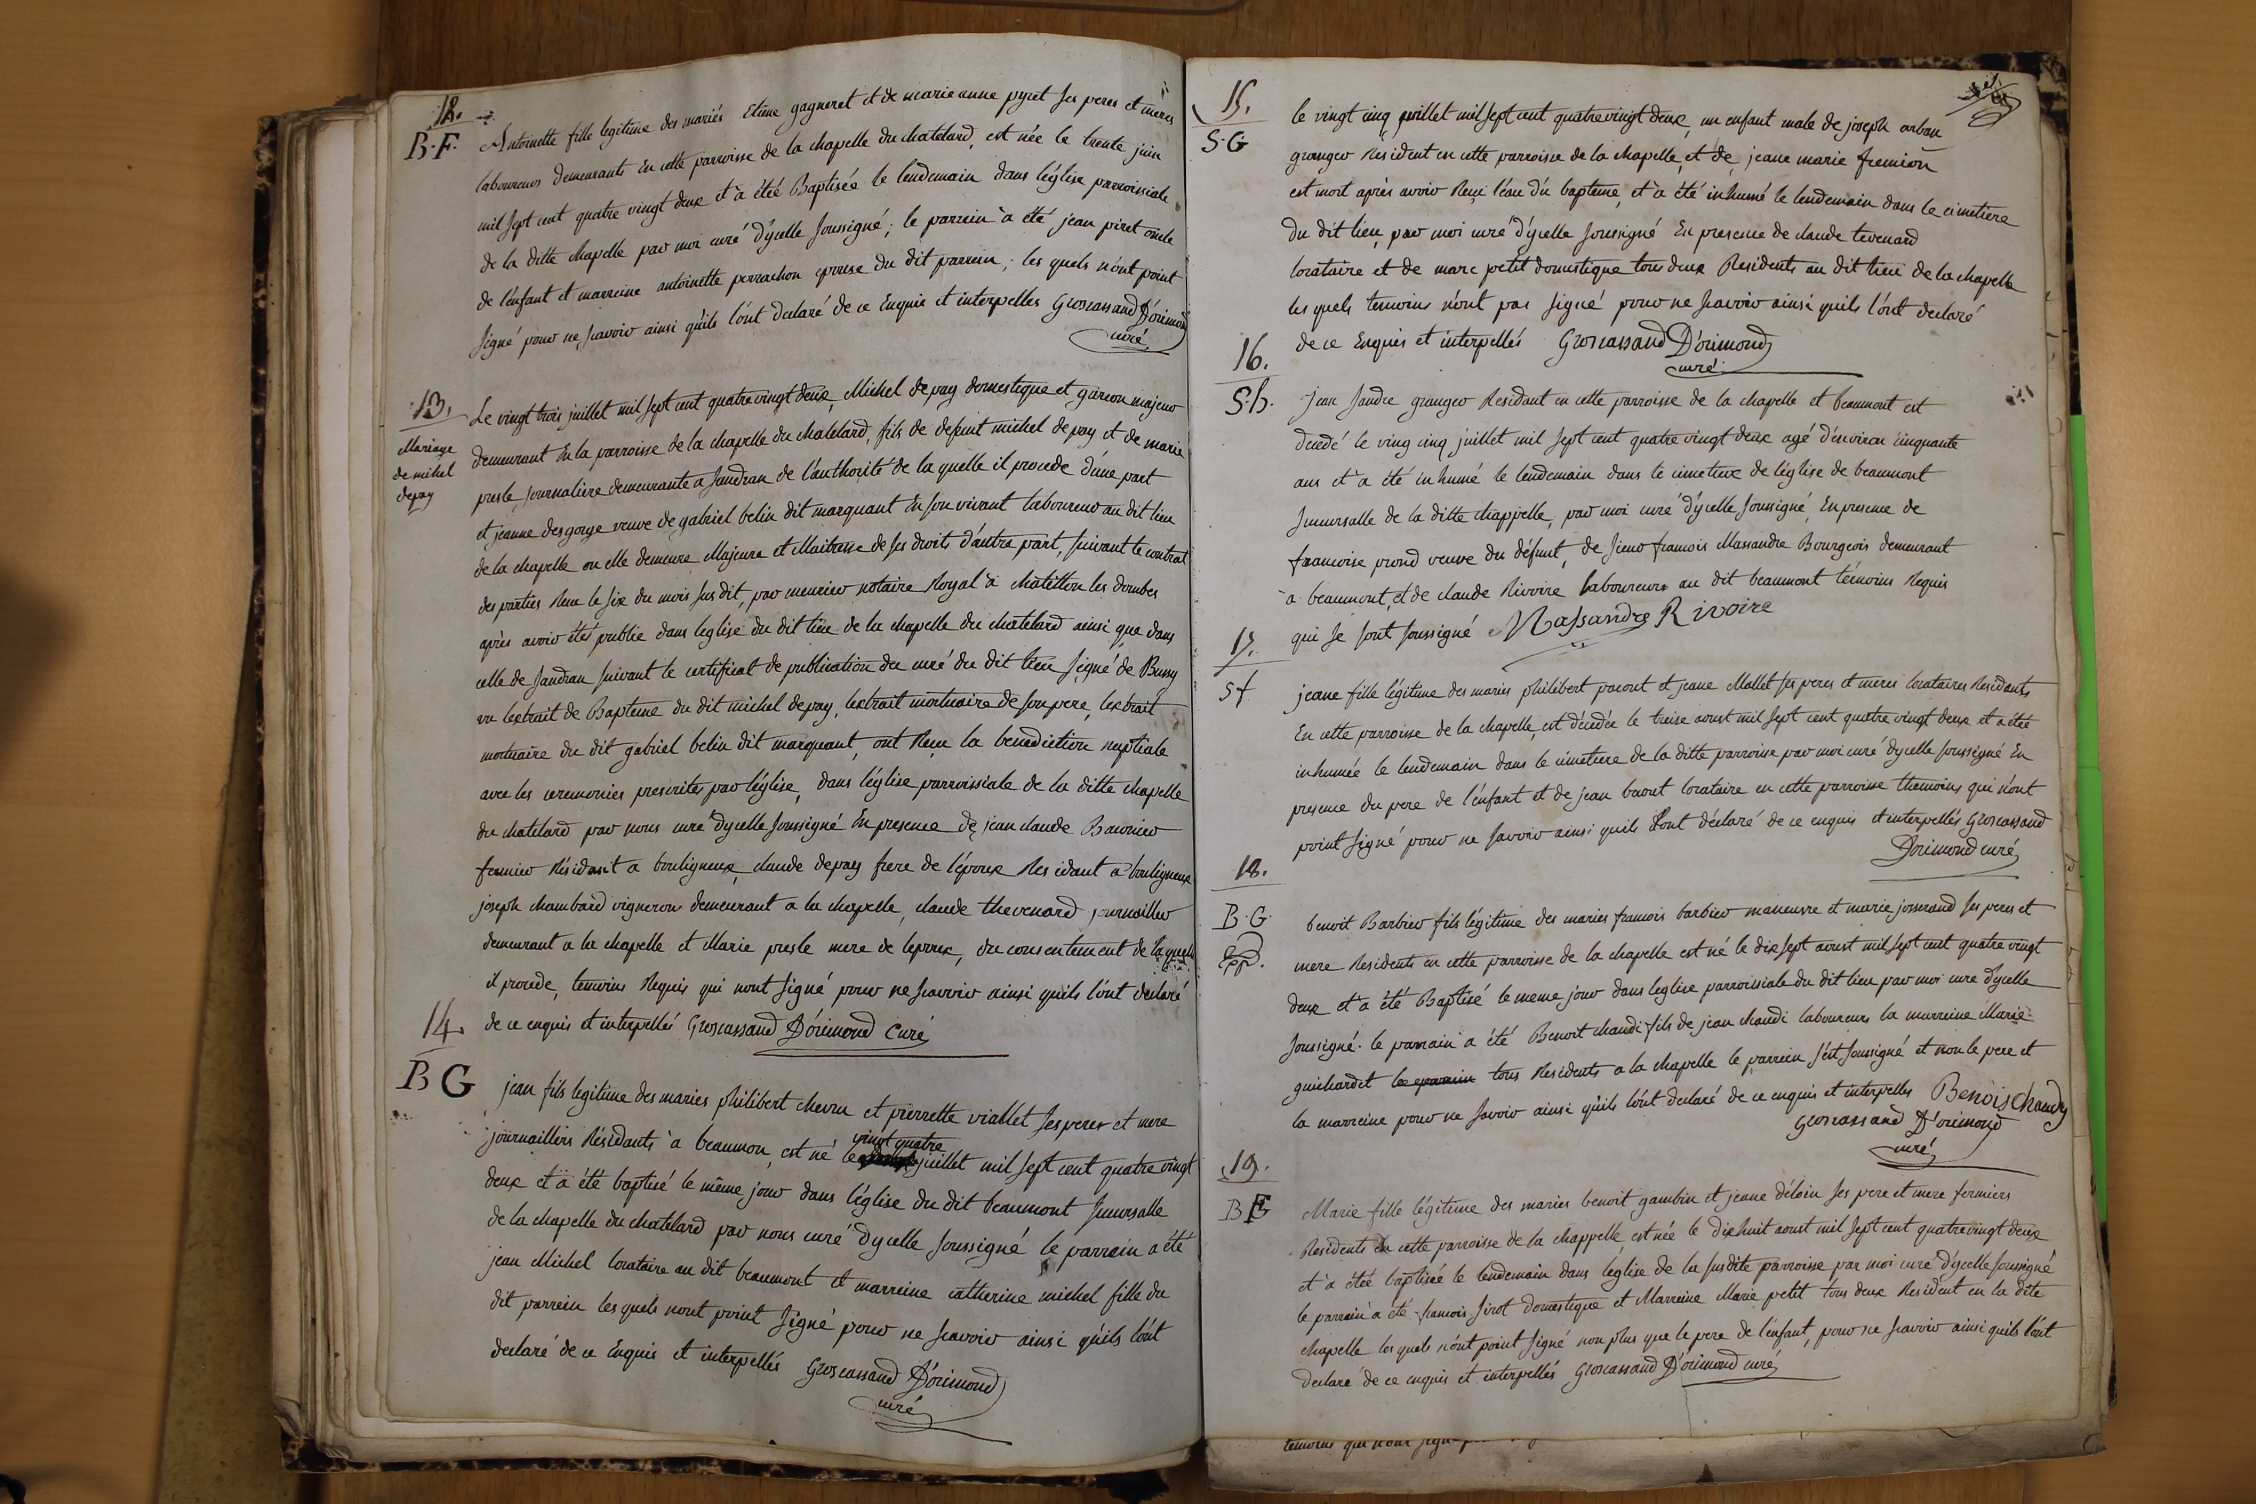 12.
B. F.
Antoinette fille legitime des mariés Etiéne gagneret et de marie anne pyret ses peres et meres
laboureurs demeurants En cette parroisse de la chapelle du chatelard, est née le trente juin
mil sept cent quatre vingt deux et à étéé Baptisée le lendemain dans l'église parroissiale
de la ditte chapelle par moi curé d'ycelle soussigné ; le parrein à été jean piret oncle
de l'enfant et marreine antoinette perrachon epouse du dit parrein ; les quels n'ont point
signé pour ne sçavoir ainsi qu'ils l'ont declaré de ce Enquis et interpellés Groscassand D'orimond
curé
13.
Mariage
de michel
depay
Le vingt trois juillet mil sept cent quatre vingt deux, Michel depay domestique et garcon majeur
demeurant En la parroisse de la chapelle du chatelard, fils de defunt michel depay et de marie
presle journaliere demeurante a sandran de l'authorité de la quelle il procede d'une part
et jeanne desgorge veuve de gabriel belin dit marquant En son vivant laboureur au dit lieu
de la chapelle ou elle demeure Majeure et Maitresse de ses droits d'autre part, suivant le contrat
des parties Recu le six du mois sus dit, par meunier notaire Royal à chatillon les dombes
après avoir étés publié dans leglise du dit lieu de la chapelle du chatelard ainsi que dans
celle de sandran suivant le certificat de publication du curé du dit lieu signé de Bussy
vu lextrait de Bapteme du dit michel depay, lextrait mortuaire de son pere, lextrait
mortuaire du dit gabriel belin dit marquant, ont Recu la benediction nuptiale
avec les ceremonies prescrites par l'église, dans l'église parroissiale de la ditte chapelle
du chatelard par nous curé d'ycelle soussigné En presence de jean claude Baronier
fermier Résidant a bouligneux, claude depay frere de l'époux Residant a bouligneux
joseph chambard vigneron demeurant a la chapelle, claude thevenard journallier
demeurant a la chapelle et Marie presle mere de lepoux, du consentement de laquelle
il procede, temoins Requis qui nont signé pour ne sçavoir ainsi qu'ils l'ont declaré
de ce enquis et interpellés Groscassand D'orimond Curé
14.
B G
jean fils legitime des mariés philibert chevru et pierrette viallet ses peres et mere
journalliers Résidants à beaumon, est né le vingt quatre juillet mil sept cent quatre vingt
deux et à été baptisé le même jour dans l'église du dit beaumont succursalle
de la chapelle du chatelard par nous curé dycelle soussigné le parrain a été
jean Michel locataire au dit beaumont et marreine catherine michel fille du
dit parrein les quels nont point signé pour ne sçavoir ainsi qu'ils l'ont
declaré de ce Enquis et interpellés Groscassand D'orimond
curé
15.
S. G
le vingt cinq juillet mil sept cent quatre vingt deux, un enfant male de joseph orban
granger Resident en cette parroisse de la chapelle et de jeane marie fremion
est mort après avoir Recu l'eau du bapteme, et à été inhumé le lendemain dans le cimetiere
du dit lieu par moi curé d'ycelle soussigné En presence de claude tevenard
locataire et de marc petit domestique tous deux Residents au dit lieu de la chapelle
les quels temoins n'ont pas signé pour ne sçavoir ainsi quils l'ont declaré
de ce Enquis et interpellés Groscassand D'orimond
curé
16.
S. h.
Jean sandre granger Residant en cette parroisse de la chapelle et beaumont est
decedé le ving cinq juillet mil sept cent quatre vingt deux agé d'environ cinquante
ans et à été inhumé le lendemain dans le cimetiere de l'église de beaumont
succursalle de la ditte chappelle, par moi curé d'ycelle soussigné, En presence de
francoise prond veuve du défunt, de sieur francois Massandre Bourgeois demeurant
à beaumont, et de claude Rivoire laboureurs au dit beaumont témoins Requis
qui se sont soussigné Massandre Rivoire
17.
S f
jeane fille légitime des mariés philibert pacout et jeane Mallet ses peres et meres locataires Residants
En cette parroisse de la chapelle, est décédée le treize aoust mil sept cent quatre vingt deux et a été
inhumée le lendemain dans le cimetiere de la ditte parroisse par moi curé d'ycelle soussigné En
presence du pere de l'enfant et de jean baout locataire en cette parroisse themoins qui n'ont
point signé pour ne sçavoir ainsi quils l'ont déclaré de ce enquis et interpellés Groscassand
D'orimond curé
18.
B. G
benoit Barbier fils légitime des mariés francois barbier maneuvre et marie josserand ses peres et
mere Residents en cette parroisse de la chapelle est né le dix sept aoust mil sept cent quatre vingt
deux et à été Baptisé le meme jour dans leglise parroissiale du dit lieu par moi curé d'ycelle
soussigné. le parrain a été Benoit chandi fils de jean chandi laboureurs la marreine Marie
guichardet tous Residents a la chapelle le parrein s'est soussigné et non le pere et
la marreine pour ne sçavoir ainsi qu'ils l'ont declaré de ce enquis et interpellés Benois Chandy
Groscassand D'orimond
curé
19.
B F
Marie fille légitime des mariés benoit gambin et jeane déloin ses pere et mere fermiers
Residents En cette parroisse de la chappelle est née le dixhuit aoust mil sept cent quatre vingt deux
et à étéé baptisée le lendemain dans l'église de la susdite parroisse par moi curé d'ycelle soussigné
le parrain à été francois sirot domestique et Marreine Marie petit tous deux Resident en la dite
chapelle les quels n'ont point signé non plus que le pere de l'enfant, pour ne sçavoir ainsi quils l'ont
declaré de ce enquis et interpellés Groscassand D'orimond curé